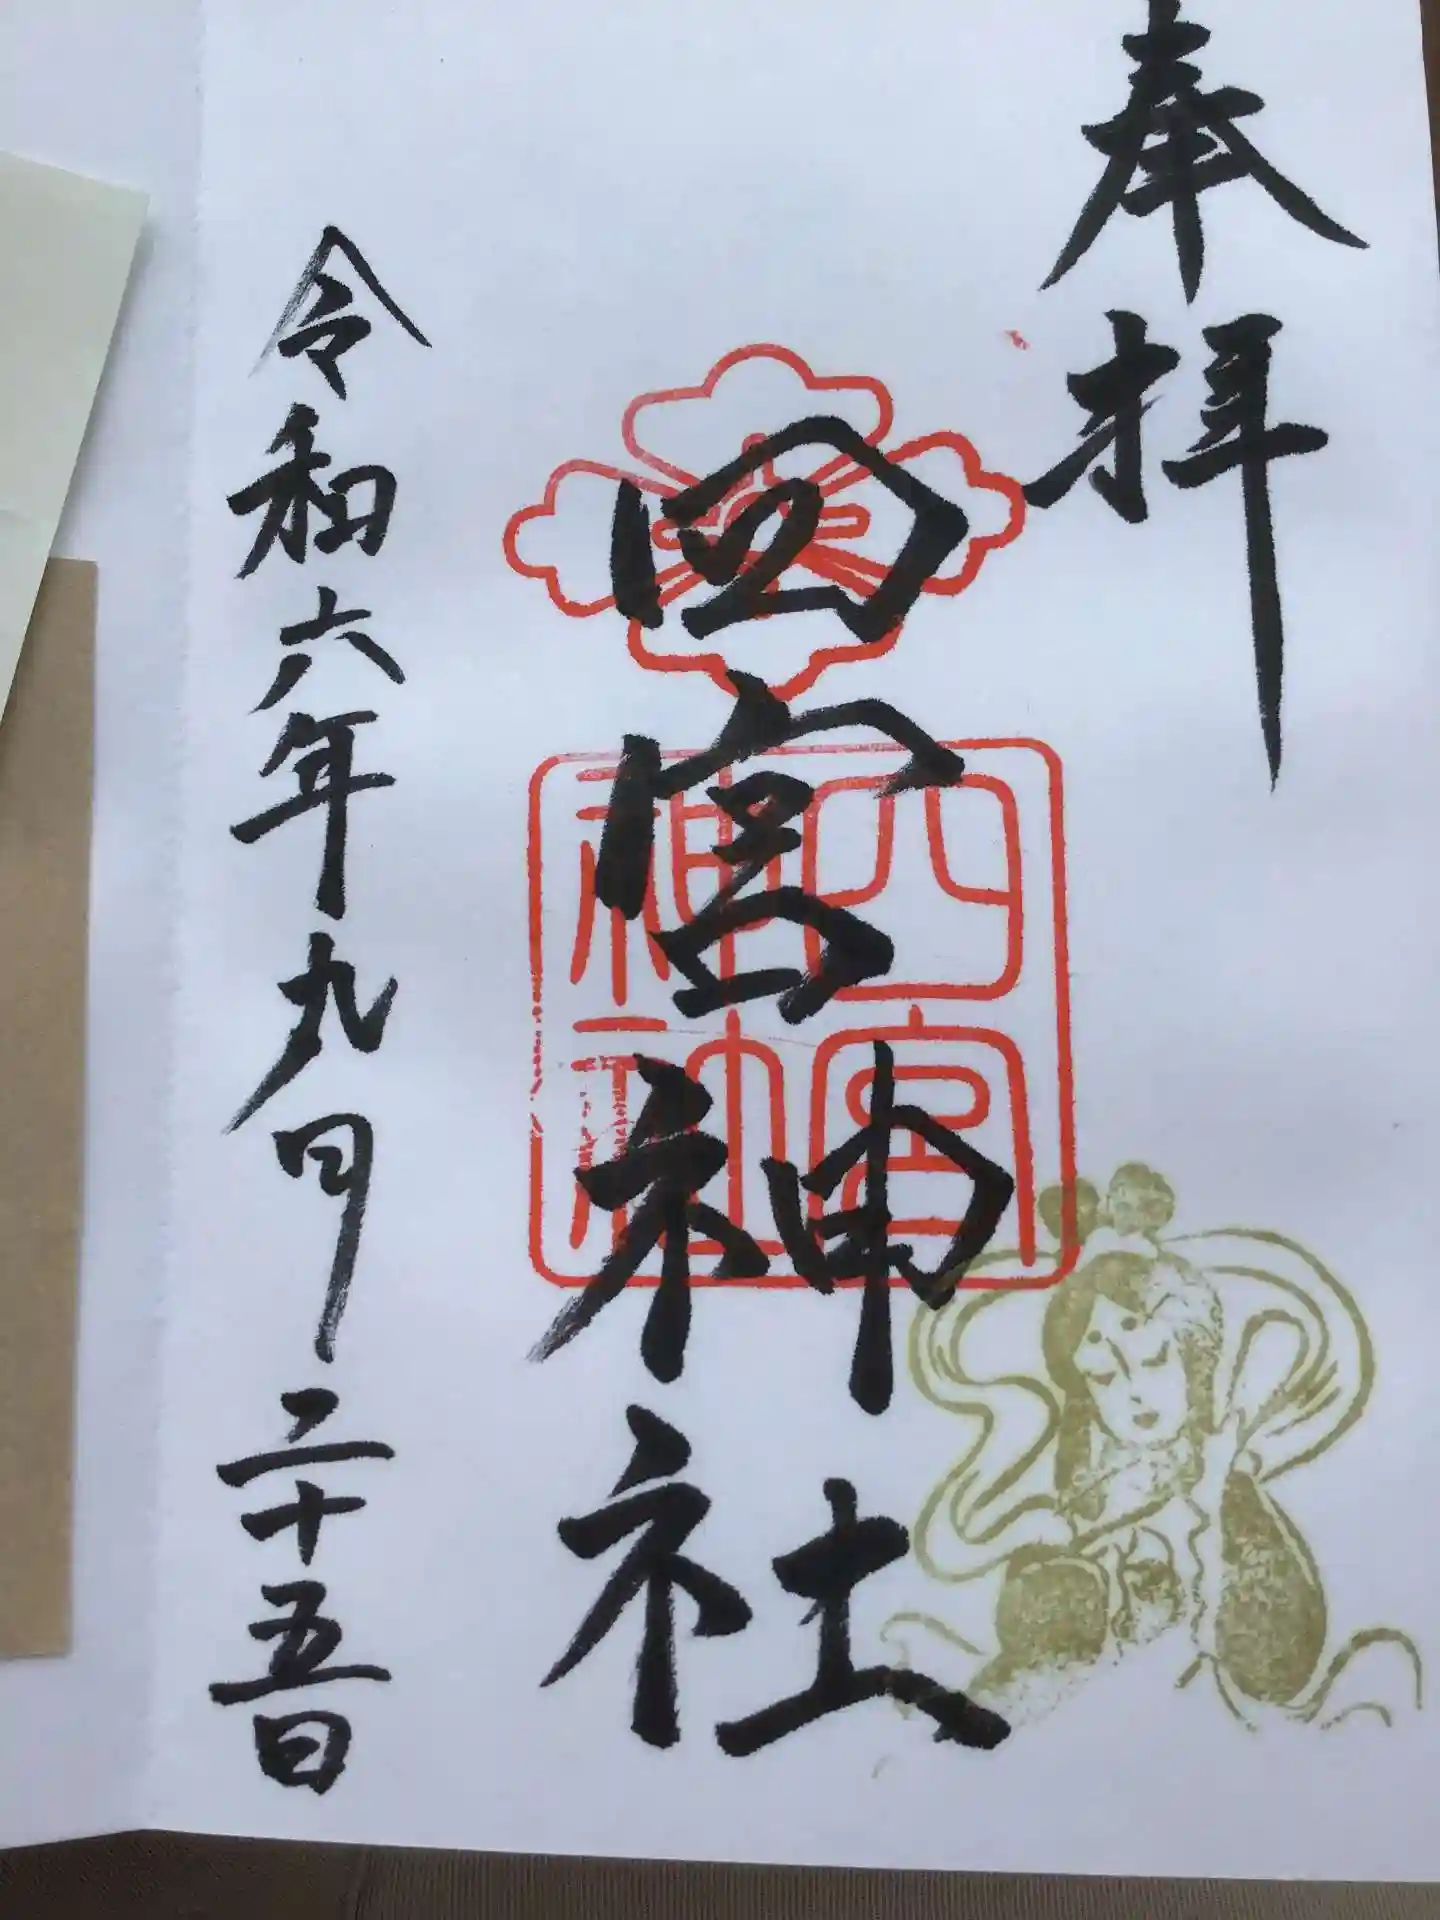 奉拝
四宮神社
四宮神社
令和六年九月二十五日